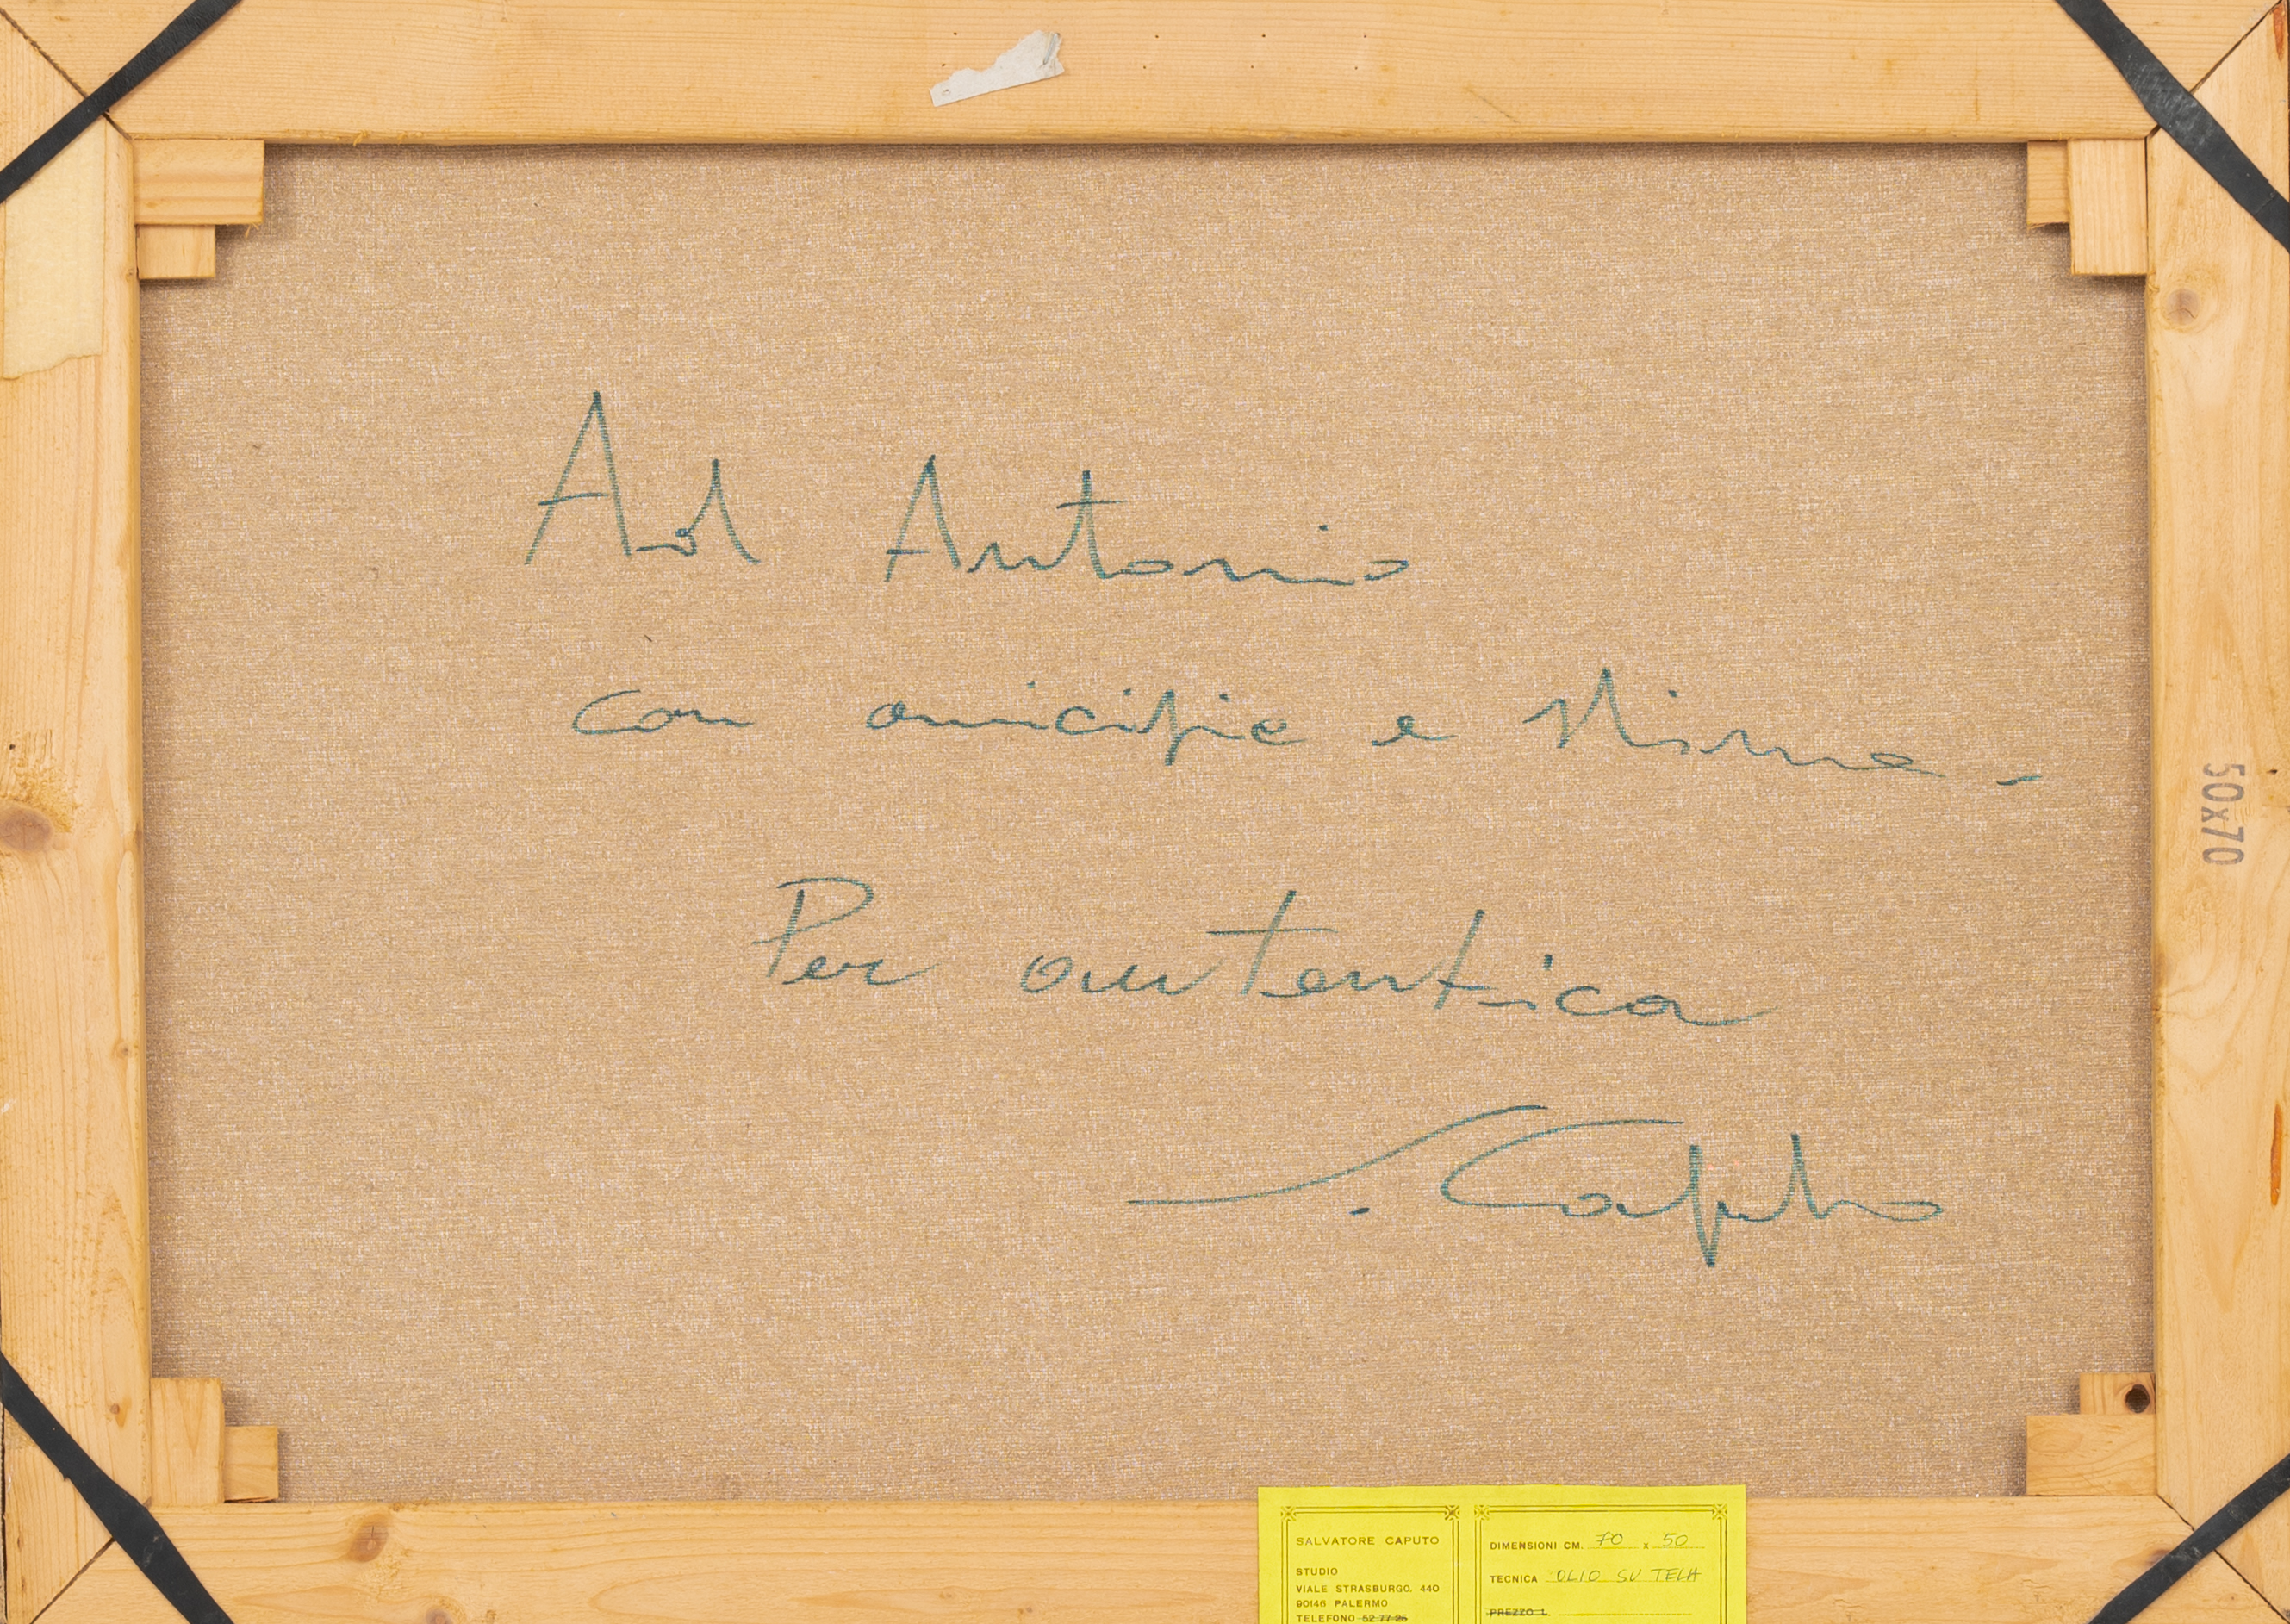 Ad Antonio
con amicizia e stima -
Per autentica
S. Caputo
50x70
SALVATORE CAPUTO
STUDIO
VIALE STRASBURGO, 440
90146 PALERMO
TELEFONO 52 77 26
DIMENSIONI CM. 70 x 50
TECNICA OLIO SU TELA
PREZZO L.